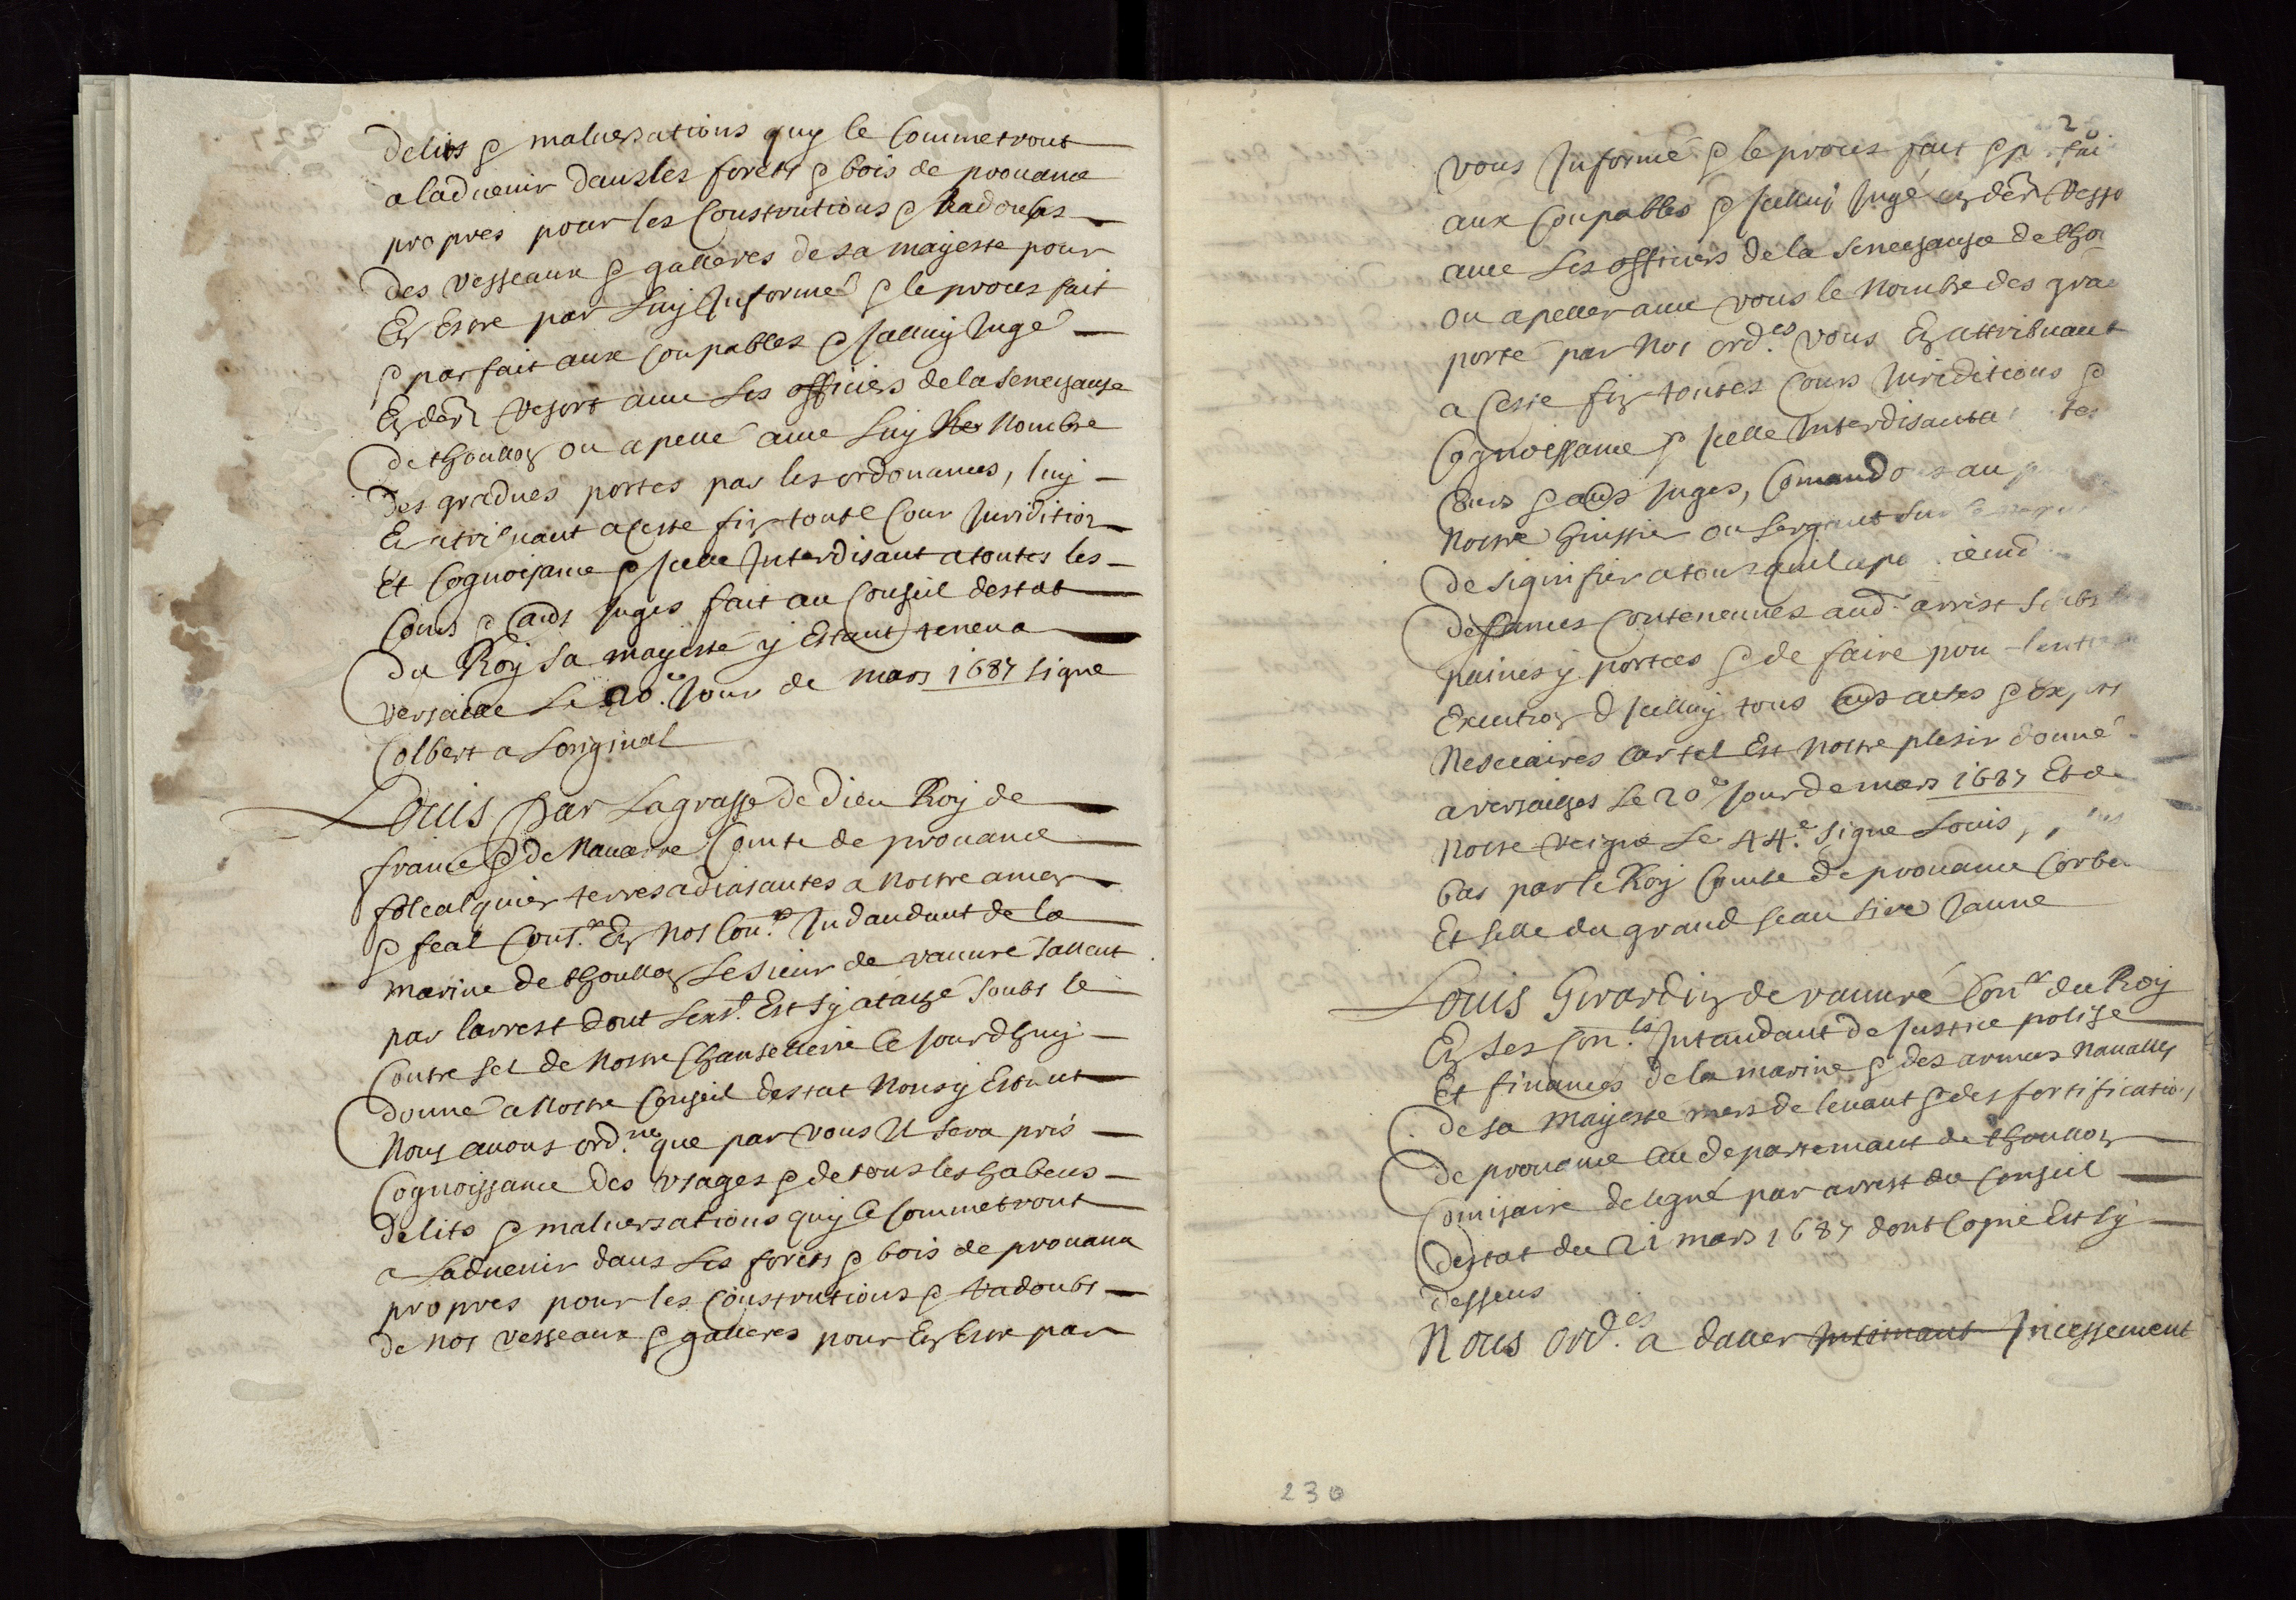 delits & maluersations quy se Commetront
a laduenir dans les forets & bois de prouance
propres pour les Construtions & Radoubs
des vesseaux & galleres de sa mayeste pour
En Estre par Luy Informé & le proces fait
& parfait aux Coupables & Jcelluy Jugé
En dern resort auec Les officiers de la Senechausé
de thoullon ou apellé auec Luy le Nombre
des gradués portes par les ordonances, luy
En atribuant a Cette fin toute Cour Juridition
Et Cognoisance & Jcelle Interdisant a toutes les
Cours & auts Juges fait au Conseil destat
du Roy sa mayesté y Estant tenu a
versaille Le 20.e Jour de mars 1687 signé
Colbert a Loriginal
Louis par La grasse de dieu Roy de
france & de Nauarre Comte de prouance
folcalquier terres adiasantes a Nostre amé
& feal Cons.er En Nos Con.ls Indandant de la
marine de thoullon Le sieur de vauuré sallent
par larrest dont Lext. Est sy ataché soubs le
Contre sel de Nostre Chansellerie Ce Jourdhuy
donné a Nostre Conseil destat Nous y Estant
Nous auons ord.né que par vous Il sera pris
Cognoissance des vsages & de tous les habeus
delits & maluersations quy se Commetront
a Laduenir dans Les forets & bois de prouance
propres pour les Construtions & Radoubs
de Nos vesseaux & galleres pour En Estre par
2
vous Informé & le proces fait &
aux Coupables & Jcelluy Jugé en dern Resso
auec Les officiers de la Senechausé de tho
ou apeller auec vous le Nombre des gra
porté par Nos ord.es vous En attribuant
a Cette fin toutes Cours Juriditions &
Cognoissance & Jcelle Interdisant a
Cours & auts Juges, Comandons au
Nostre huissier ou sergent sur
de signiffier a tous quil
deffances Contenennes aud. arrest soubs
paines y portees & de faire pour
Execution d Jcelluy tous auts actes &
Nesceaires Car tel Est Nostre plesir donné
a versailhes Le 20e Jour de mars 1687 Et de
Nostre reigne Le 44.e signé Louis
bas par le Roy Comte de prouance
Et sellé du grand seau sire Jaune
Louis Girardin de vauuré Con.er du Roy
En ses Con.ls Intandant de Justice polise
Et finances de la marine & des armees Naualles
de sa mayesté mers de leuant & des fortification
de prouance au departemant de thoullon
Comisaire delegué par arrest du Conseil
destat du 21 mars 1687 dont Copie Est sy
dessus
Nous ord.es a daller Incessement
230